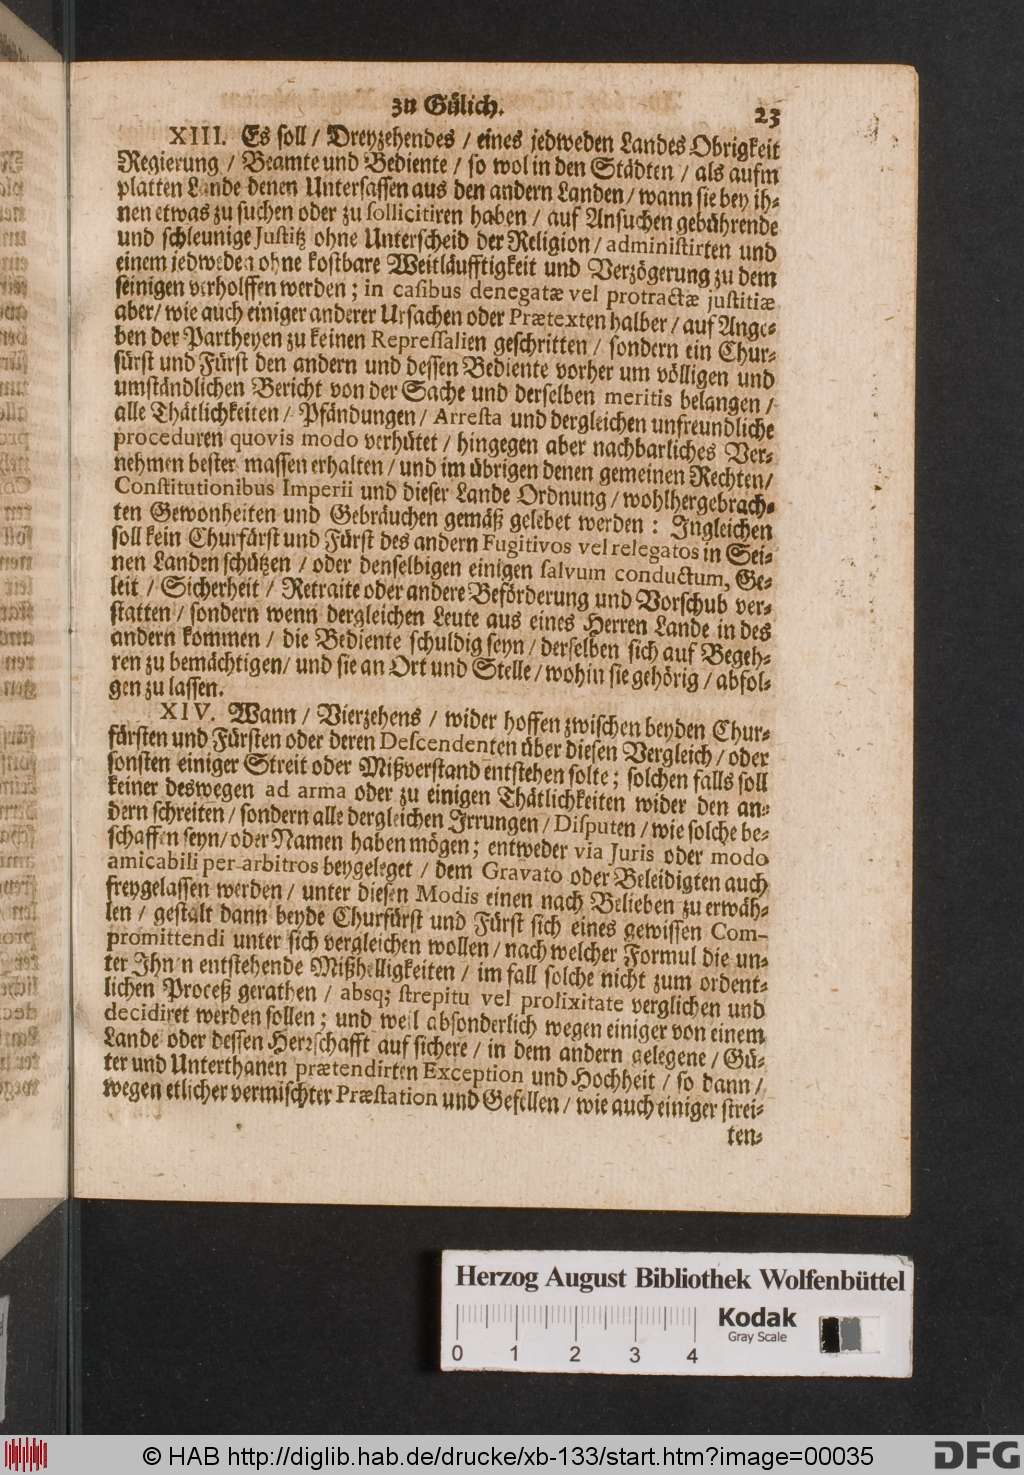 zu Gülich. 23
XIII. Es soll / Dreyzehendes / eines jedweden Landes Obrigkeit
Regierung / Beamte und Bediente / so wol in den Städten / als aufm
platten Lande denen Untersassen aus den andern Landen / wann sie bey ih-
nen etwas zu suchen oder zu sollicitiren haben / auf Ansuchen gebührende
und schleunige Justitz ohne Unterscheid der Religion / administirten und
einem jedweden ohne kostbare Weitläufftigkeit und Verzögerung zu dem
seinigen verholffen werden ; in casibus denegatæ vel protractæ justitiæ
aber / wie auch einiger anderer Ursachen oder Prætexten halber / auf Ange-
ben der Partheyen zu keinen Repressalien geschritten / sondern ein Chur-
fürst und Fürst den andern und dessen Bediente vorher um völligen und
umständlichen Bericht von der Sache und derselben meritis belangen /
alle Thätlichkeiten / Pfändungen / Arresta und dergleichen unfreundliche
proceduren quovis modo verhütet / hingegen aber nachbarliches Ver-
nehmen bester massen erhalten / und im übrigen denen gemeinen Rechten /
Constitutionibus Imperii und dieser Lande Ordnung / wohlhergebrach-
ten Gewonheiten und Gebräuchen gemäß gelebet werden : Ingleichen
soll kein Churfürst und Fürst des andern Fugitivos vel relegatos in Sei-
nen Landen schützen / oder denselbigen einigen salvum conductum, Ge-
leit / Sicherheit / Retraite oder andere Beförderung und Vorschub ver-
statten / sondern wenn dergleichen Leute aus eines Herren Lande in des
andern kommen / die Bediente schuldig seyn / derselben sich auf Begeh-
ren zu bemächtigen / und sie an Ort und Stelle / wohin sie gehörig / abfol-
gen zu lassen.
XIV. Wann / Vierzehens / wider hoffen zwischen beyden Chur-
fürsten und Fürsten oder deren Descendenten über diesen Vergleich / oder
sonsten einiger Streit oder Mißverstand entstehen solte ; solchen falls soll
keiner deswegen ad arma oder zu einigen Thätlichkeiten wider den an-
dern schreiten / sondern alle dergleichen Irrungen / Disputen / wie solche be-
schaffen seyn / oder Namen haben mögen ; entweder via Juris oder modo
amicabili per arbitros beygeleget / dem Gravato oder Beleidigten auch
freygelassen werden / unter diesen Modis einen nach Belieben zu erwäh-
len / gestalt dann beyde Churfürst und Fürst sich eines gewissen Com-
promittendi unter sich vergleichen wollen / nach welcher Formul die un-
ter Ihnen entstehende Mißhelligkeiten / im fall solche nicht zum ordent-
lichen Proceß gerathen / absq; strepitu vel prolixitate verglichen und
decidiret werden sollen ; und weil absonderlich wegen einiger von einem
Lande oder dessen Herrschafft auf sichere / in dem andern gelegene / Gü-
ter und Unterthanen prætendirten Exception und Hochheit / so dann /
wegen etlicher vermischter Præstation und Gefellen / wie auch einiger strei-
ten-
Herzog August Bibliothek Wolfenbüttel
Kodak
Gray Scale
0 1 2 3 4
© HAB http://diglib.hab.de/drucke/xb-133/start.htm?image=00035
DFG